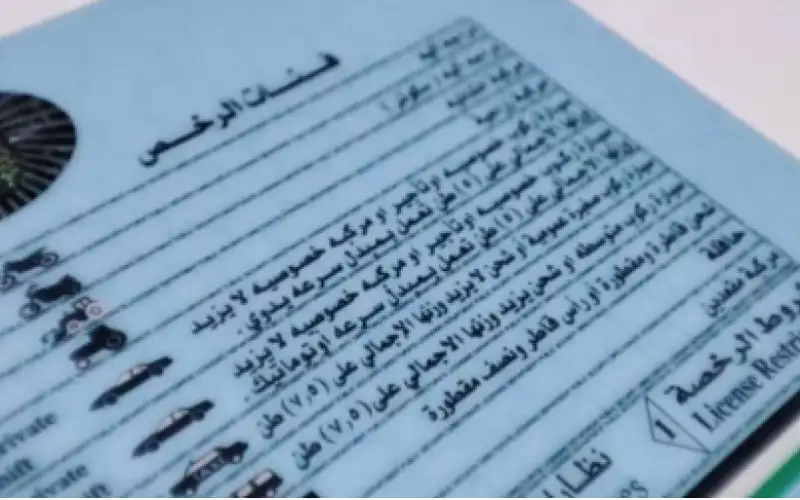 فئات الرخص
دراجة آلية
دراجة آلية (سكوتر)
مركبة زراعية
سيارة ركوب خصوصية او تأجير او مركبه خصوصيه لا يزيد
وزنها الاجمالي على (٥) طن تعمل بمبدل سرعه يدوي.
سيارة ركوب خصوصية او تأجير او مركبه خصوصيه لا يزيد
وزنها الاجمالي على (٥) طن تعمل بمبدل سرعه اوتوماتيك.
سيارة ركوب صغيرة عمومية او شحن لا يزيد وزنها الاجمالي على (٧,٥) طن
سيارة ركوب متوسطه او شحن يزيد وزنها الاجمالي على (٧,٥) طن
شحن قاطرة ومقطورة او رأس قاطر ونصف مقطورة
حافلة
مركبة مقعدين
روط الرخصة
License Restri
1
نظارا
rivate
hift
ivate
ift